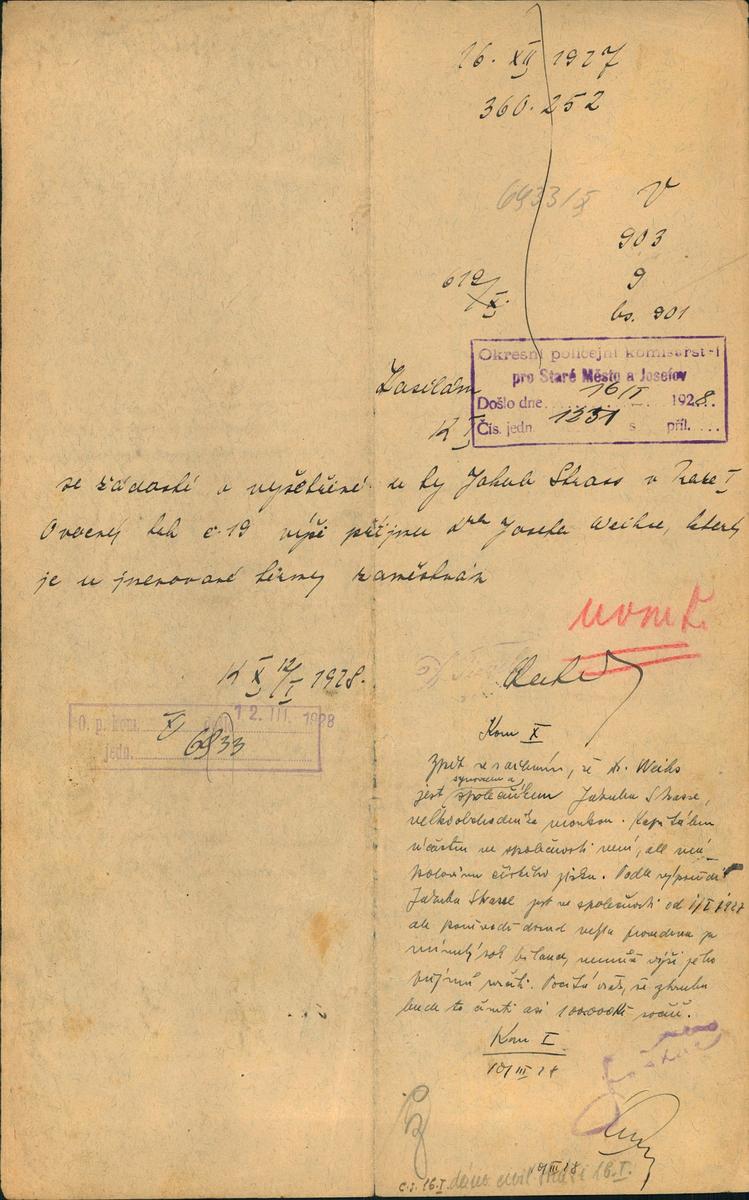 16. XII 1927
360.252
6933/X
V
903
612/X.
9
bs. 901
Okresní policejní komisařství
pro Staré Město a Josefov
Došlo dne 16/I 1928.
Čís. jedn. 1251 s příl.
Zasílám
K I
se žádostí o vyšetření u fy Jakub Strass v Praze I
Ovocný trh č. 19 výši příjmu Dra Josefa Weihse, který
je u jmenované firmy zaměstnán
K X 12/I 1928.
O. p. kom. X 12. III. 1928
jedn. 6933
Kom X
Zpět se sdělením, že Dr. Weihs
jest společníkem Jakuba Strasse,
velkoobchodníka moukou. Kapitálem
účasten ve společnosti není, ale má
polovinu čistého zisku. Podle výpovědi
Jakuba Strasse jest ve společnosti od 1/I 1927
ale poněvadž dosud nebyla provedena za
minulý rok bilance, nemůže výši jeho
příjmů určiti. Počítá však, že zhruba
bude to činiti asi 100.000 Kč ročně.
Kom I
10/III 28
10/III 28
16. I.
16. I.